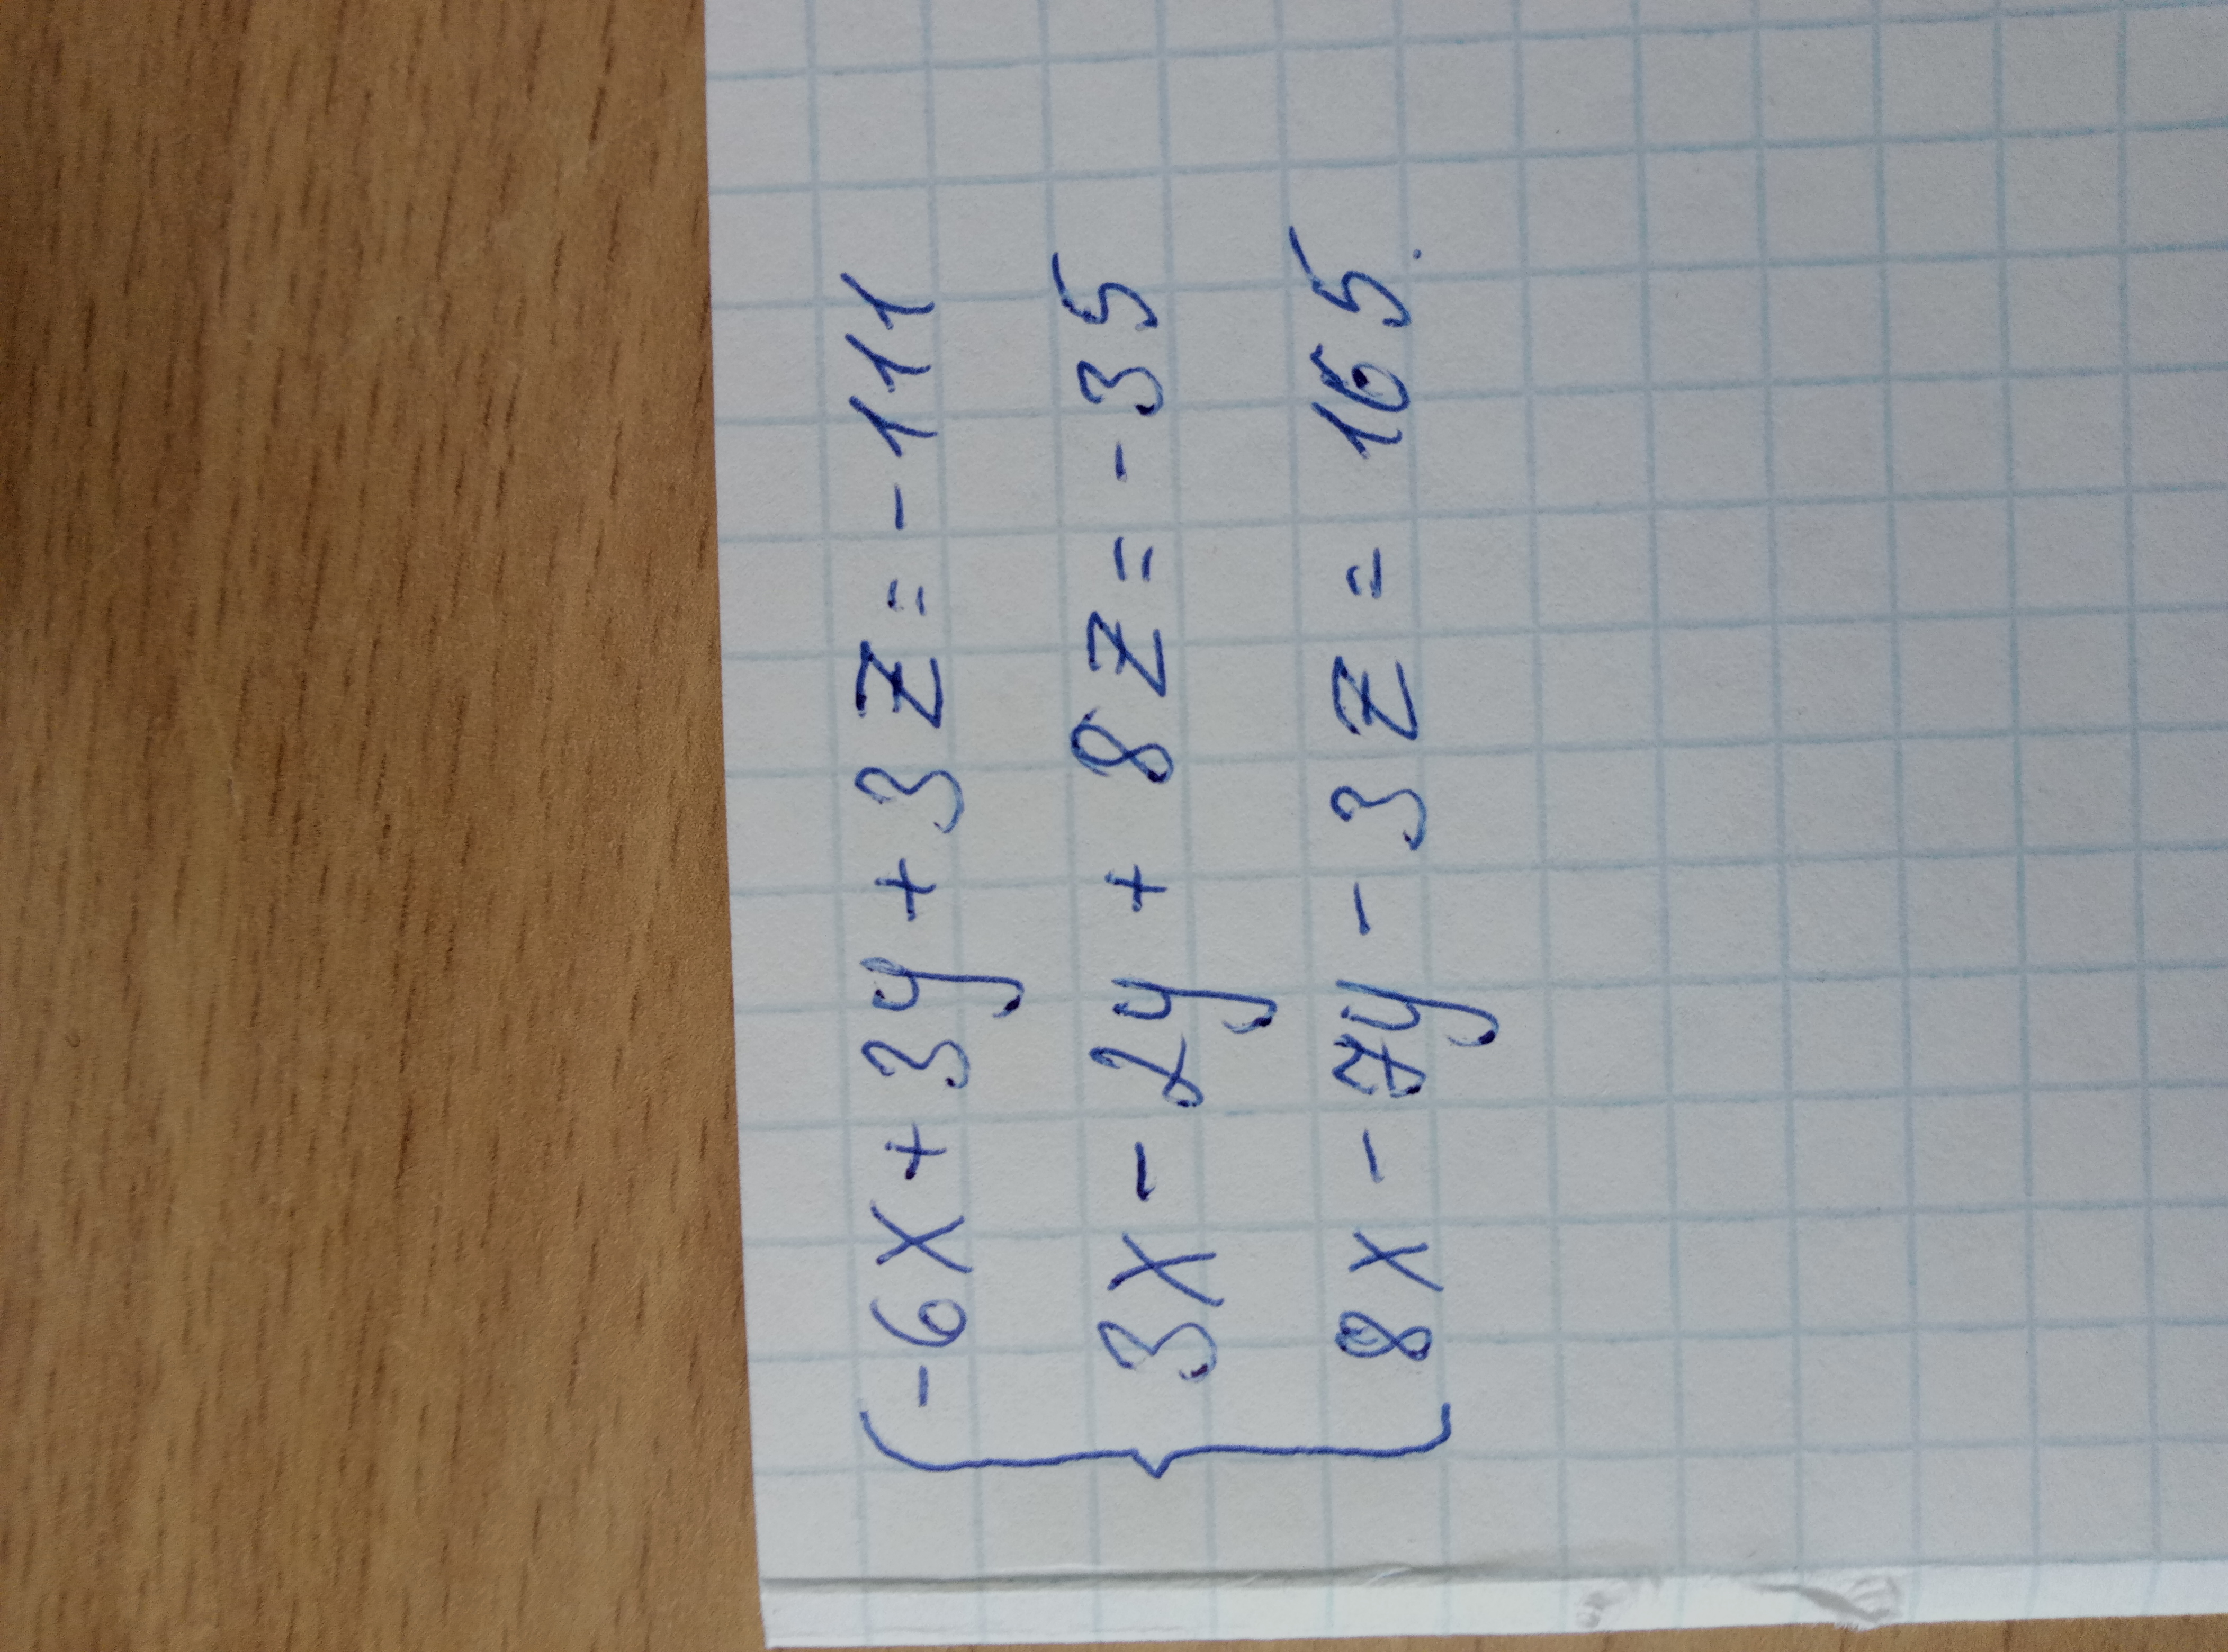 -6x + 3y + 3z = -111
3x - 2y + 8z = -35
8x - 7y - 3z = 165.